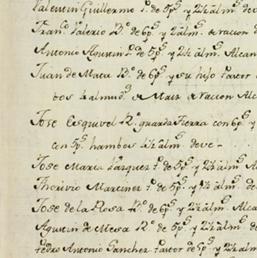 Valentin Guillermo P.º de 5p.s y 2½ alm.s de
Fran.co Valerio R.º de 6p.s y 2 alm.s de racion de
Antonio Agustin P.º de 5p.s y 2½ alm.s Alcan
Juan de Mata R.º de 6p.s y su hijo Pastor
bos 4 almud.s de Maiz de racion Alc
Jose Esquivel R.º guarda tierra con 6p.s y
con 5p.s hambos 4½ alm.s deve
Jose Maria Vazquez P.º de 5p.s y 2½ alm.s
Thorivio Martinez P.º de 5p.s y 2½ alm.s de
Jose de la Rosa R.º de 6p.s y 2½ alm.s de
Agustin de Mesa R.º de 5p.s y 2½ alm.s de
Pedro Antonio Sanchez Pastor de 5p.s y 2½ alm